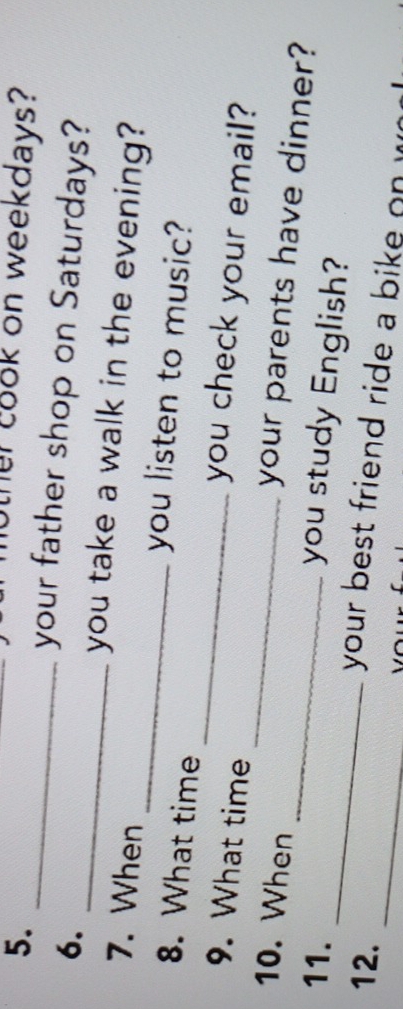 mother cook on weekdays?
5. ____________ your father shop on Saturdays?
6. ____________ you take a walk in the evening?
7. When ____________ you listen to music?
8. What time ____________ you check your email?
9. What time ____________ your parents have dinner?
10. When ____________ you study English?
11. ____________ your best friend ride a bike on
12. ____________ your